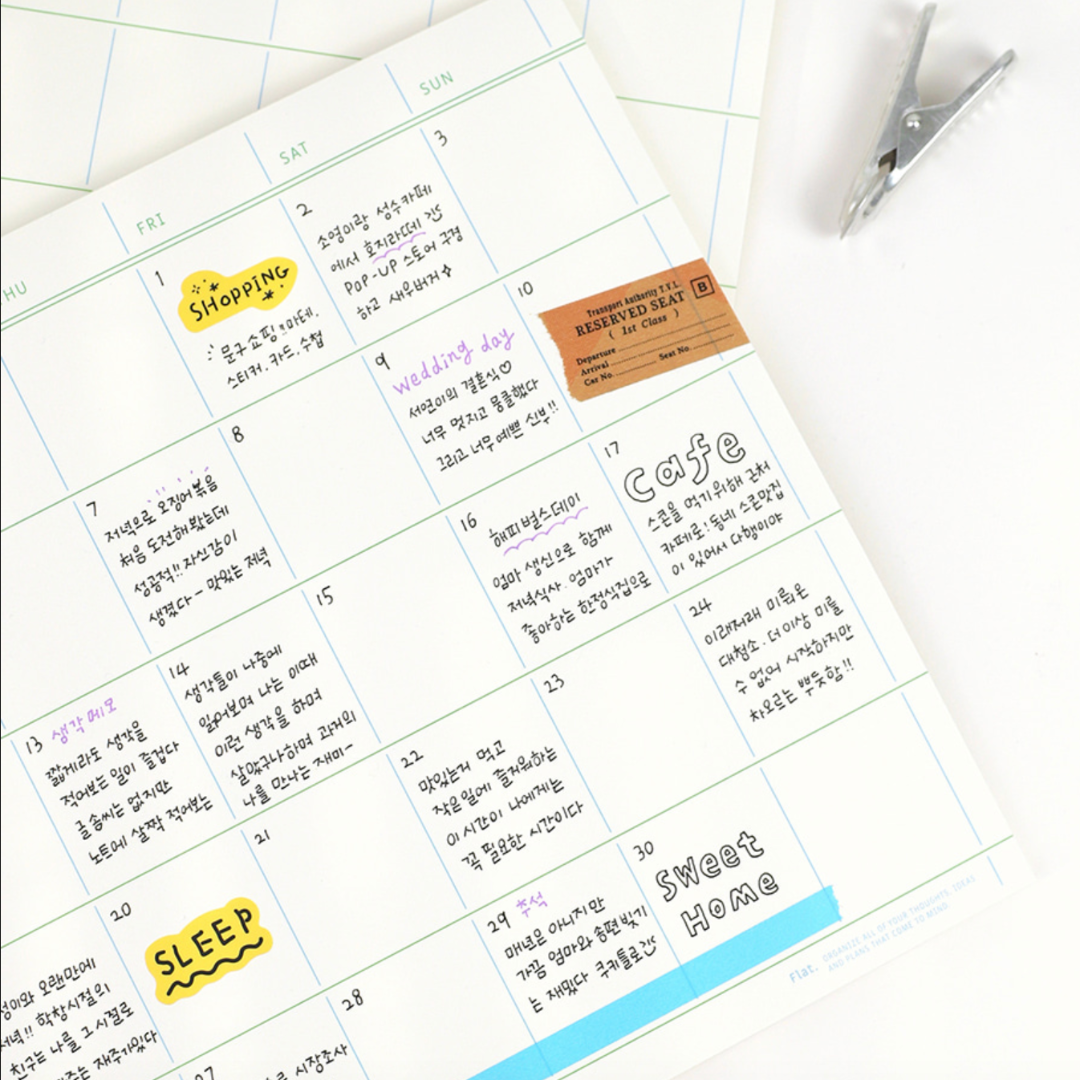 HU
FRI
SAT
SUN
1
SHOPPING
문구쇼핑 마테,
스티커, 카드, 수첩
2
소영이랑 성수카페
에서 호지라떼
POP-UP 스토어 구경
하고 새우버거
3
7
저녁으로 오징어볶음
처음 도전해봤는데
성공적!! 자신감이
생겼다- 맛있는 저녁
8
9
wedding day
서연이의 결혼식♡
너무 멋지고 뭉클했다
그리고 너무예쁜 신부!!
10
Transport Authority T.V.L.
RESERVED SEAT
( 1st Class )
B
Departure
Arrival
Seat No.
Car No.
13 생각메모
짧게라도 생각을
적어보는 일이 즐겁다
글솜씨는 없지만
노트에 살짝 적어보는
14
생각들이 나중에
읽어보며 나는 이때
이런 생각을 하며
살았구나하며 과거의
나를 만나는 재미-
15
16
해피벌스데이
엄마 생신으로 함께
저녁식사. 엄마가
좋아하는 한정식집으로
17
cafe
스콘을 먹기위해 근처
카페로! 동네 스콘맛집
이 있어서 다행이야
20
SLEEP
성이와 오랜만에
저녁!! 학창시절의
친구는 나를 그시절로
주는 재주가있다
21
22
맛있는거 먹고
작은일에 즐거워하는
이 시간이 나에게는
꼭 필요한 시간이다
23
24
이래저래 미뤄온
대청소. 더이상 미룰
수 없어 시작하지만
차오르는 뿌듯함!!
27
로 시장조사
28
29 추석
매년은 아니지만
가끔 엄마와 송편빚기
는 재밌다 쿠키틀로
30
SWeet
HOMe
Flat. ORGANIZE ALL OF YOUR THOUGHTS, IDEAS
AND PLANS THAT COME TO MIND.